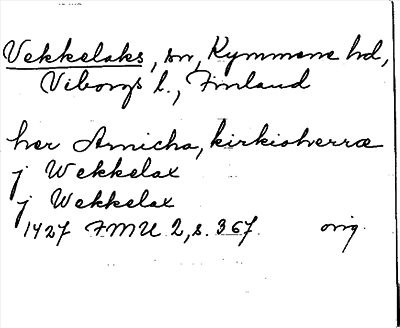 Vekkelaks, sn, Kymmene hd,
Viborgs l., Finland
her Amicha, kirkioherræ
j Wekkelax
j Wekkelax
1427 FMU 2, s. 367. orig.